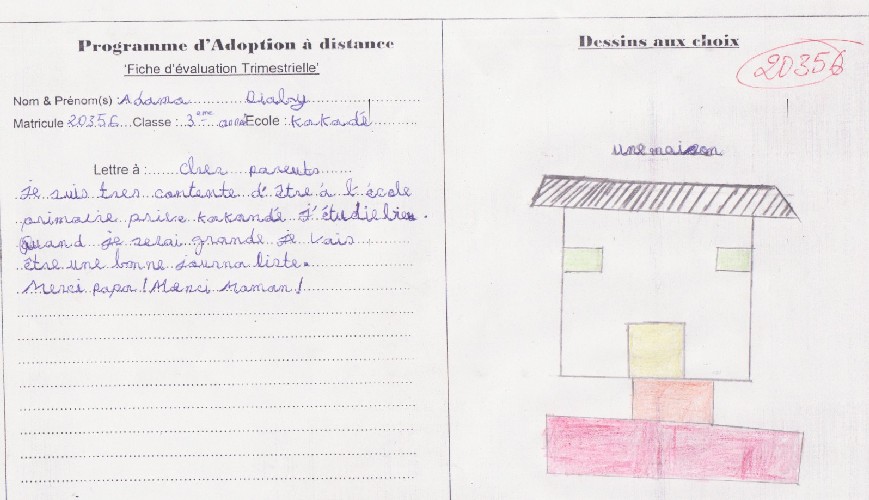 Programme d'Adoption à distance
'Fiche d'évaluation Trimestrielle'
Nom & Prénom(s) : Adama Diaby
Matricule 20356 Classe : 3ème année Ecole : Kakandé
Lettre à : cher parents
Je suis tres contente d'être à l'école
primaire privé kakandé J'étudie bien.
Quand je serai grande je vais
être une bonne journa liste.
Merci papa! Merci Maman!
Dessins aux choix
20356
une maison